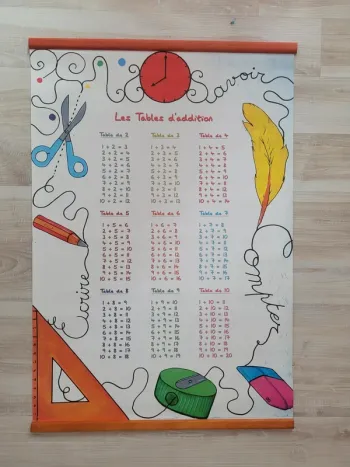 Savoir
Les Tables d'addition
Table de 2
1 + 2 = 3
2 + 2 = 4
3 + 2 = 5
4 + 2 = 6
5 + 2 = 7
6 + 2 = 8
7 + 2 = 9
8 + 2 = 10
9 + 2 = 11
10 + 2 = 12
Table de 3
1 + 3 = 4
2 + 3 = 5
3 + 3 = 6
4 + 3 = 7
5 + 3 = 8
6 + 3 = 9
7 + 3 = 10
8 + 3 = 11
9 + 3 = 12
10 + 3 = 13
Table de 4
1 + 4 = 5
2 + 4 = 6
3 + 4 = 7
4 + 4 = 8
5 + 4 = 9
6 + 4 = 10
7 + 4 = 11
8 + 4 = 12
9 + 4 = 13
10 + 4 = 14
Table de 5
1 + 5 = 6
2 + 5 = 7
3 + 5 = 8
4 + 5 = 9
5 + 5 = 10
6 + 5 = 11
7 + 5 = 12
8 + 5 = 13
9 + 5 = 14
10 + 5 = 15
Table de 6
1 + 6 = 7
2 + 6 = 8
3 + 6 = 9
4 + 6 = 10
5 + 6 = 11
6 + 6 = 12
7 + 6 = 13
8 + 6 = 14
9 + 6 = 15
10 + 6 = 16
Table de 7
1 + 7 = 8
2 + 7 = 9
3 + 7 = 10
4 + 7 = 11
5 + 7 = 12
6 + 7 = 13
7 + 7 = 14
8 + 7 = 15
9 + 7 = 16
10 + 7 = 17
Table de 8
1 + 8 = 9
2 + 8 = 10
3 + 8 = 11
4 + 8 = 12
5 + 8 = 13
6 + 8 = 14
7 + 8 = 15
8 + 8 = 16
9 + 8 = 17
10 + 8 = 18
Table de 9
1 + 9 = 10
2 + 9 = 11
3 + 9 = 12
4 + 9 = 13
5 + 9 = 14
6 + 9 = 15
7 + 9 = 16
8 + 9 = 17
9 + 9 = 18
10 + 9 = 19
Table de 10
1 + 10 = 11
2 + 10 = 12
3 + 10 = 13
4 + 10 = 14
5 + 10 = 15
6 + 10 = 16
7 + 10 = 17
8 + 10 = 18
9 + 10 = 19
10 + 10 = 20
Écrire
Compter